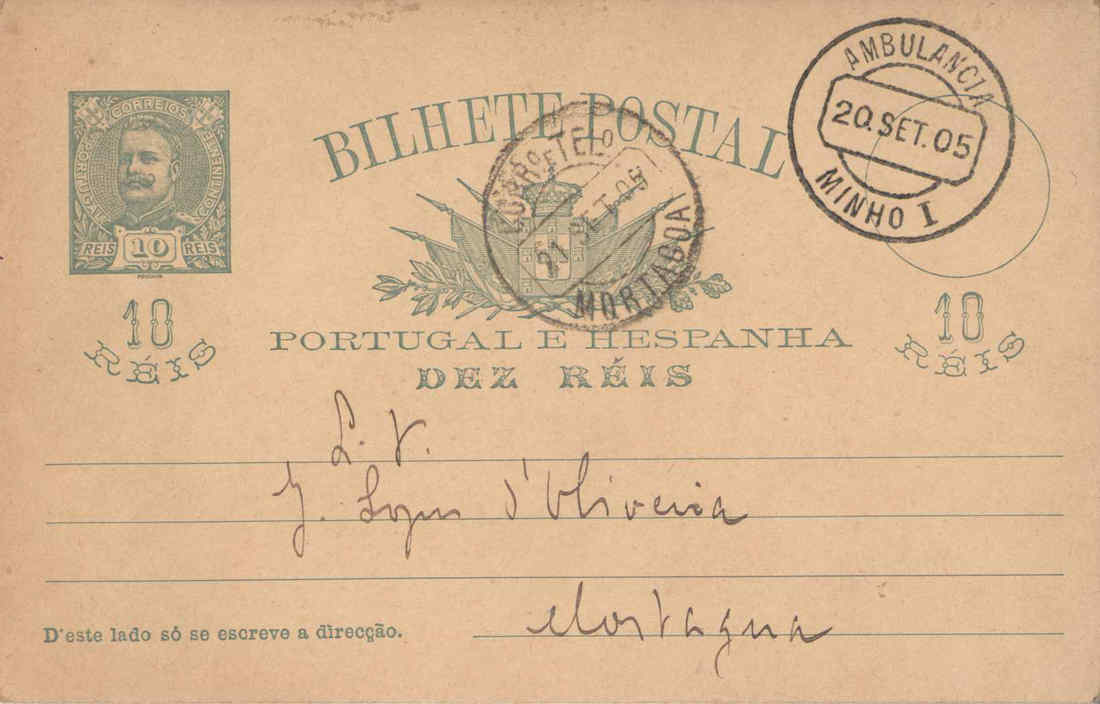 PORTUGAL CORREIOS CONTINENTE
REIS 10 REIS
BILHETE POSTAL
AMBULANCIA
20.SET.05
MINHO I
CORRO E TELO
21 SET. 05
MORTAGOA
10
RÉIS
PORTUGAL E HESPANHA
DEZ RÉIS
10
RÉIS
L. V.
J. Lopes d'Oliveira
Mortagua
D'este lado só se escreve a direcção.